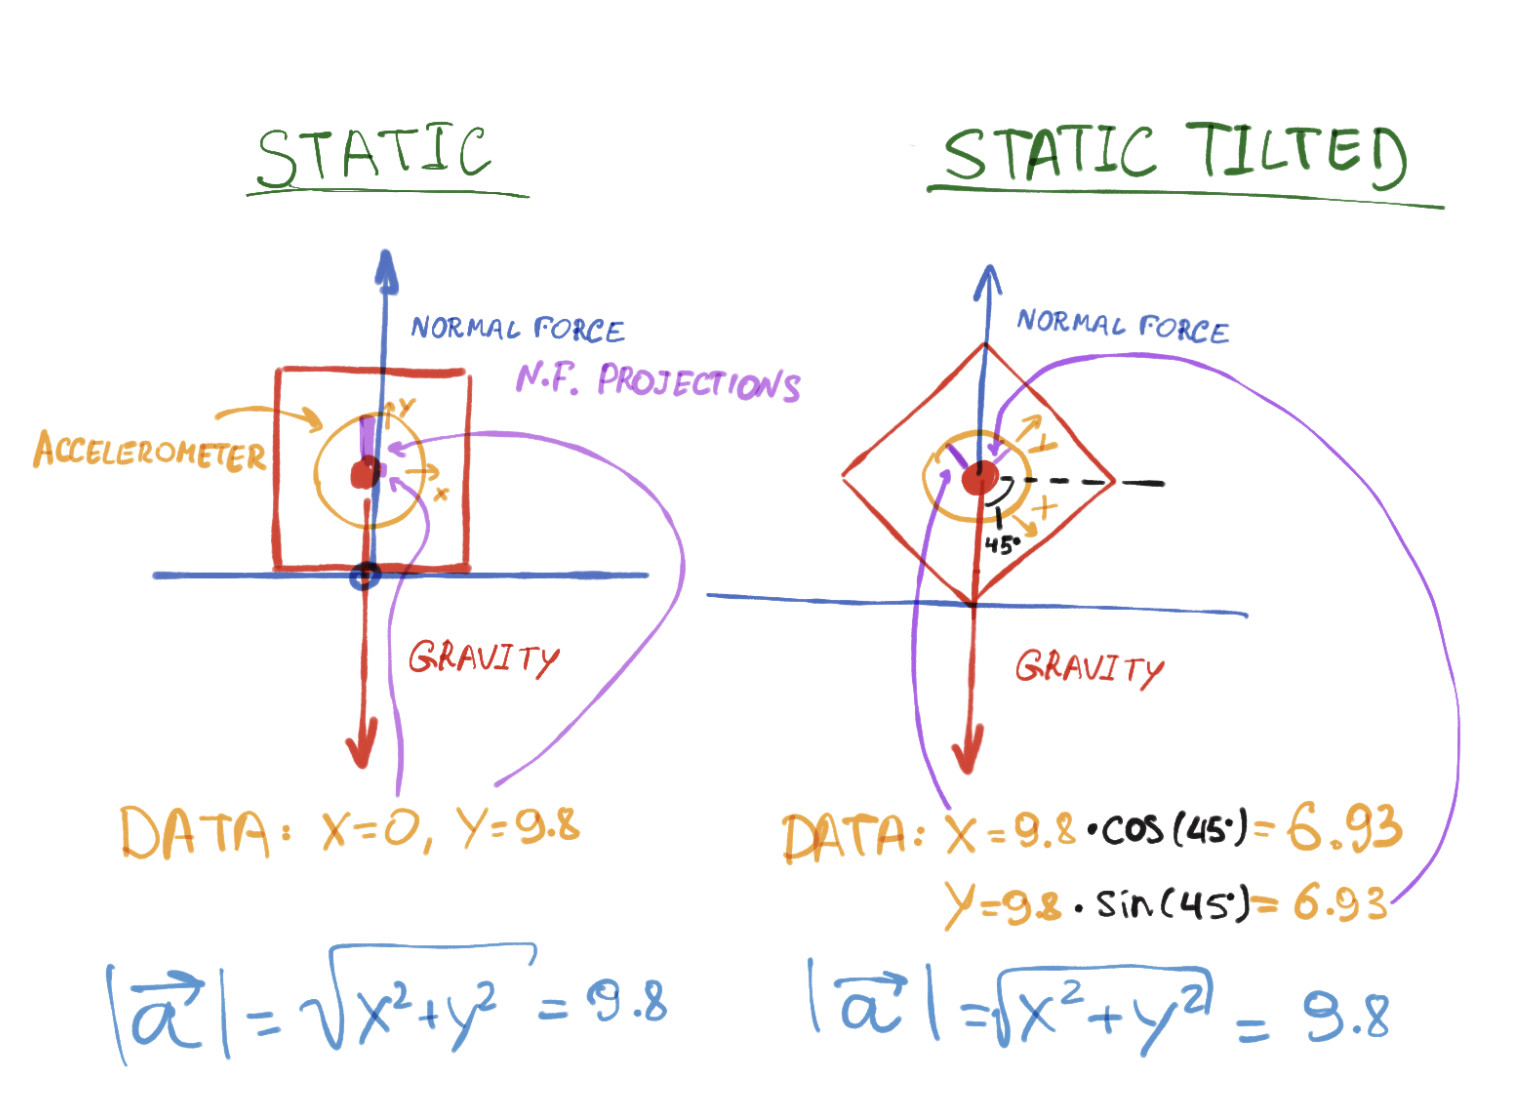 STATIC
NORMAL FORCE
N.F. PROJECTIONS
ACCELEROMETER
Y
x
GRAVITY
DATA: X=0, Y=9.8
|a⃗| = √(x²+y²) = 9.8
STATIC TILTED
NORMAL FORCE
Y
X
45°
GRAVITY
DATA: X=9.8 · cos(45°)= 6.93
Y=9.8 · sin(45°)= 6.93
|a⃗| = √(x²+y²) = 9.8